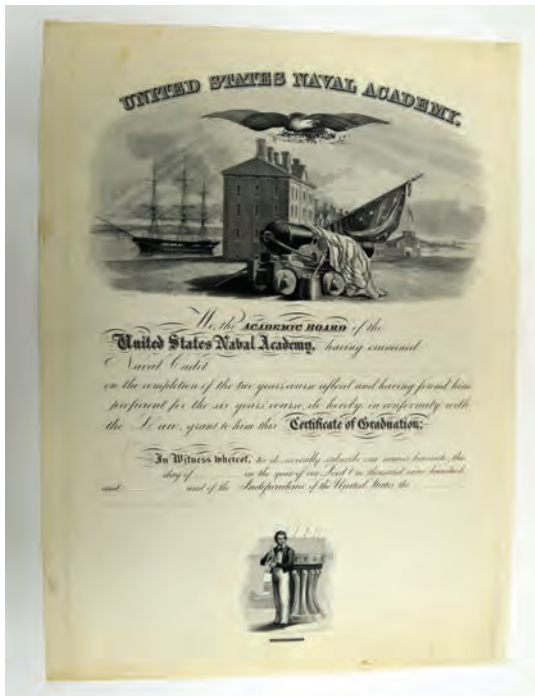 UNITED STATES NAVAL ACADEMY.
We, the ACADEMIC BOARD of the
United States Naval Academy, having examined
Naval Cadet
on the completion of the two years' course afloat and having found him
proficient for the six years' course, do hereby, in conformity with
the Law, grant to him this Certificate of Graduation;
In Witness whereof, we do severally subscribe our names hereunto, this
day of in the year of our Lord One thousand nine hundred
and and of the Independence of the United States the